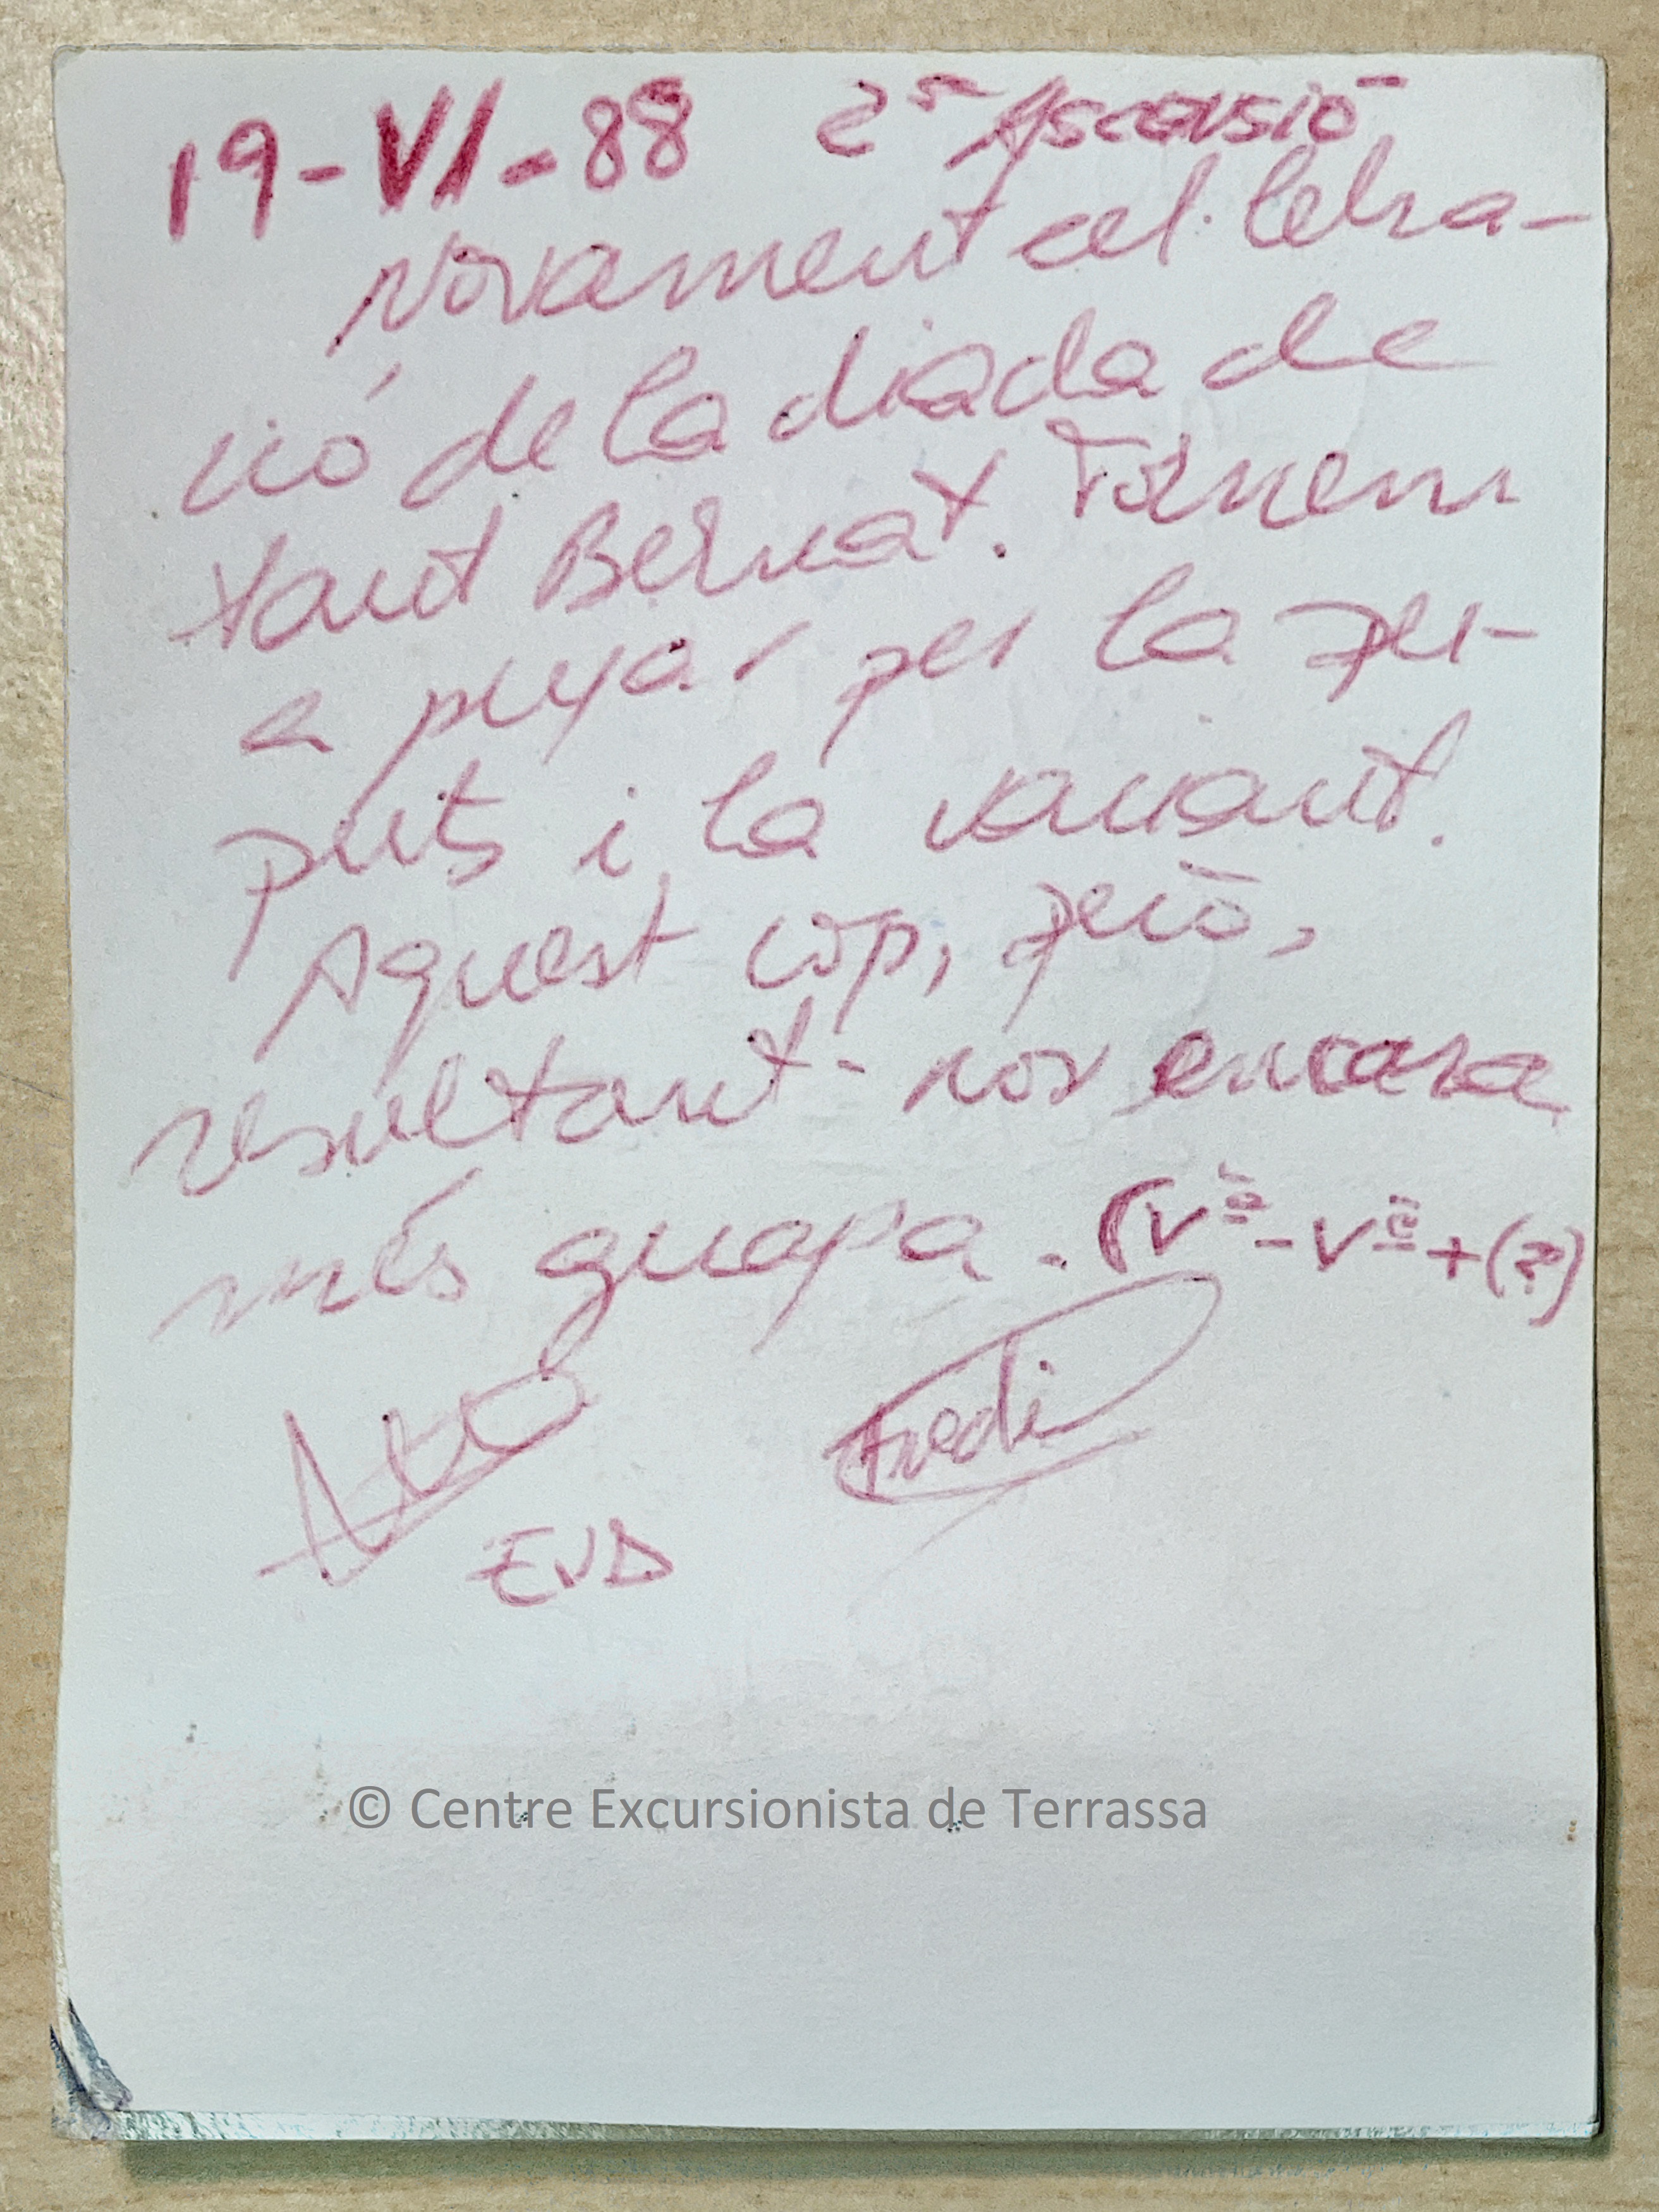 19-VI-88 2ª Ascensió
Novament cel·lebra-
ció de la diada de
tant Bernat. Tornem
a pujar per la Per-
puts i la variant.
Aquest cop, però,
resultant-nos encara
més guapa. (Vº-Vº+(?)
Fredi
END
© Centre Excursionista de Terrassa